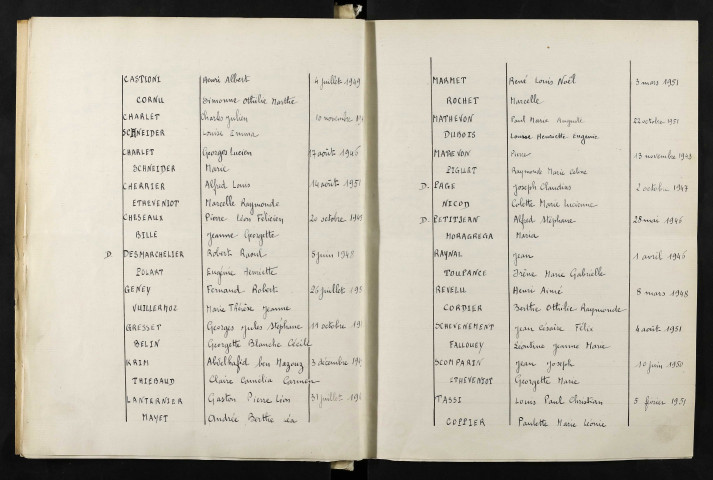 CASTIONI Henri Albert 4 juillet 1949
CORNU Simonne Othilie Marthe
CHARLET Charles Julien 10 novembre
SCHNEIDER Louise Emma
CHARLET Georges Lucien 17 août 1946
SCHNEIDER Marie
CHERRIER Alfred Louis 14 août 1951
ETHEVENIOT Marcelle Raymonde
CHESEAUX Pierre Léon Félicien 20 octobre
BILLE Jeanne Georgette
D. DESMARCHELIER Robert Raoul 5 juin 1948
Eugénie Henriette
GENEY Fernand Robert 26 juillet
VUILLERMOZ Marie Thérèse Jeanne
GRESSET Georges Jules Stéphane 11 octobre
BELIN Georgette Blanche Cécile
KRIM Abdelhafid ben Mazouz 3 décembre
THIEBAUD Claire Camélia Carmen
LANTERNIER Gaston Pierre Léon 31 juillet
MAYET Andrée Berthe
MARMET René Louis Noël 3 mars 1951
ROCHET Marcelle
MATHEVON Paul Marie Auguste 22 octobre 1951
DUBOIS Louise Henriette Eugénie
MATHEVON Pierre 13 novembre 1948
Raymonde Marie
D. PAGE Joseph Claudius 2 octobre 1947
NICOD Colette Marie Lucienne
D. PETITJEAN Alfred Stéphane 28 mai 1946
MORAGREGA Maria
RAYNAL Jean 1 avril 1946
TOUPANCE Irène Marie Gabrielle
REVELU Henri Aimé 8 mars 1948
CORDIER Berthe Othilie Raymonde
SCHEVENEMENT Jean Césaire Félix 4 août 1951
FALLOUEY Léontine Jeanne Marie
SCOMPARIN Jean Joseph 10 juin 1950
ETHEVENIOT Georgette Marie
TASSI Louis Paul Christian 5 février 1951
COPPIER Paulette Marie Léonie